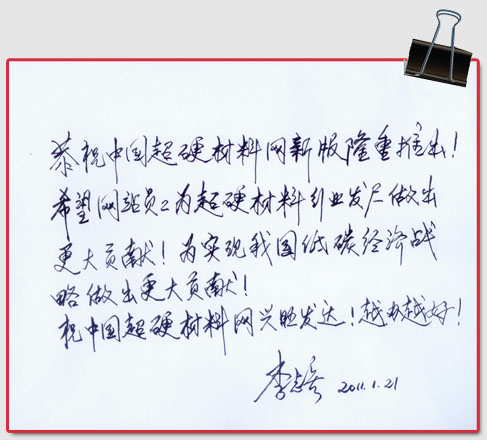 恭祝中国超硬材料网新版隆重推出!
希望网站员工为超硬材料行业发展做出
更大贡献!为实现我国低碳经济战
略做出更大贡献!
祝中国超硬材料网兴旺发达!越办越好!
李 2011.1.21